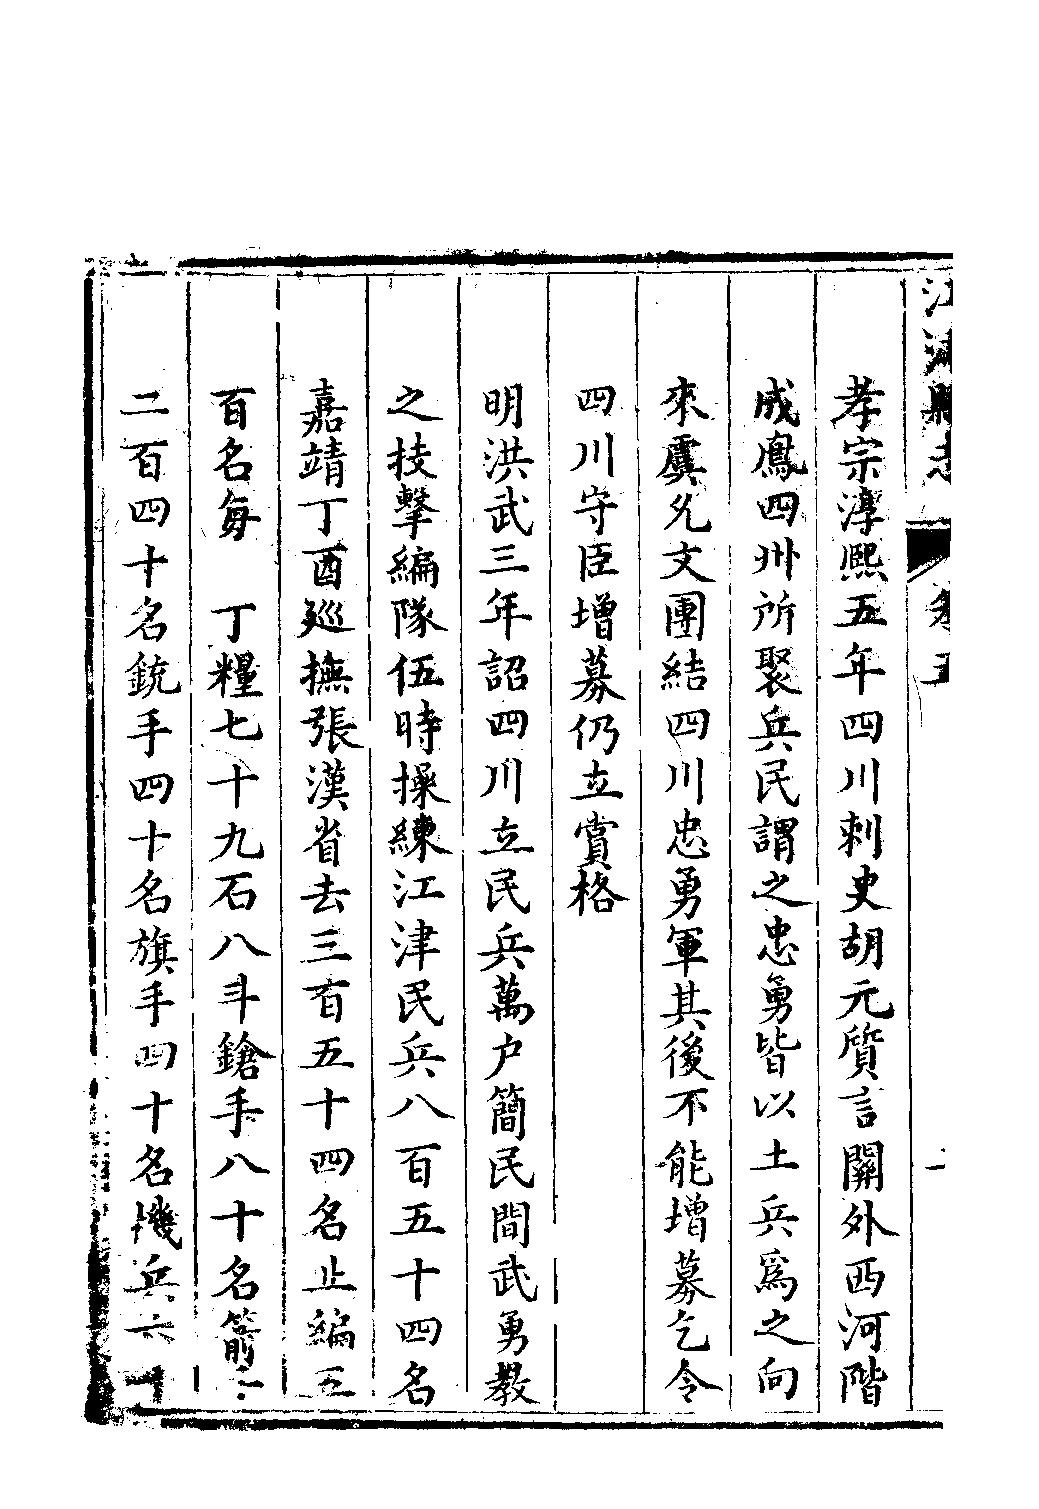 江津縣志
卷五
孝宗淳熙五年四川刺史胡元質言關外西河階
成鳳四州所聚兵民謂之忠勇皆以土兵爲之向
來虞允文團結四川忠勇軍其後不能增募乞令
四川守臣增募仍立賞格
明洪武三年詔四川立民兵萬户簡民間武勇教
之技擊編隊伍時操練江津民兵八百五十四名
嘉靖丁酉廵撫張漢省去三百五十四名止編五
百名每 丁糧七十九石八斗鎗手八十名箭手
二百四十名銃手四十名旗手四十名機兵六十